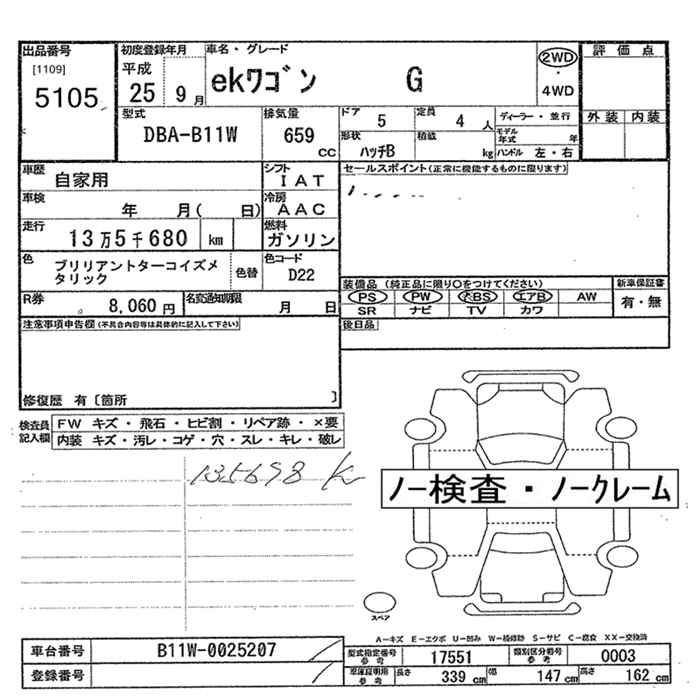 出品番号
[1109]
5105
初度登録年月
平成
25 9 月
車名・グレード
ekワゴン G
2WD
・
4WD
評価点
外装 内装
型式
DBA-B11W
排気量
659 CC
ドア 5
定員 4 人
ディーラー・並行
形状 ハッチB
積載 kg
モデル年式 年
ハンドル 左・右
車歴
自家用
シフト
IAT
車検
年 月( 日)
冷房
AAC
走行
13万5千680 km
燃料
ガソリン
色
ブリリアントターコイズメ
タリック
色替
色コード
D22
R券
8,060 円
名変通知期限 月 日
セールスポイント(正常に機能するものに限ります)
装備品(純正品に限り○をつけてください)
PS PW ABS エアB AW
SR ナビ TV カワ
新車保証書
有・無
後日品
注意事項申告欄(不具合内容等は具体的に記入して下さい)
修復歴 有〔箇所 〕
検査員
記入欄
FW キズ・飛石・ヒビ割・リペア跡・×要
内装 キズ・汚レ・コゲ・穴・スレ・キレ・破レ
135698 K
ノー検査・ノークレーム
スペア
A-キズ E-エクボ U-凹み W-補修跡 S-サビ C-腐食 XX-交換済
車台番号 B11W-0025207
登録番号
型式指定番号
参考
17551
類別区分番号
参考
0003
車庫証明用
参考
長さ 339 cm
幅 147 cm
高さ 162 cm